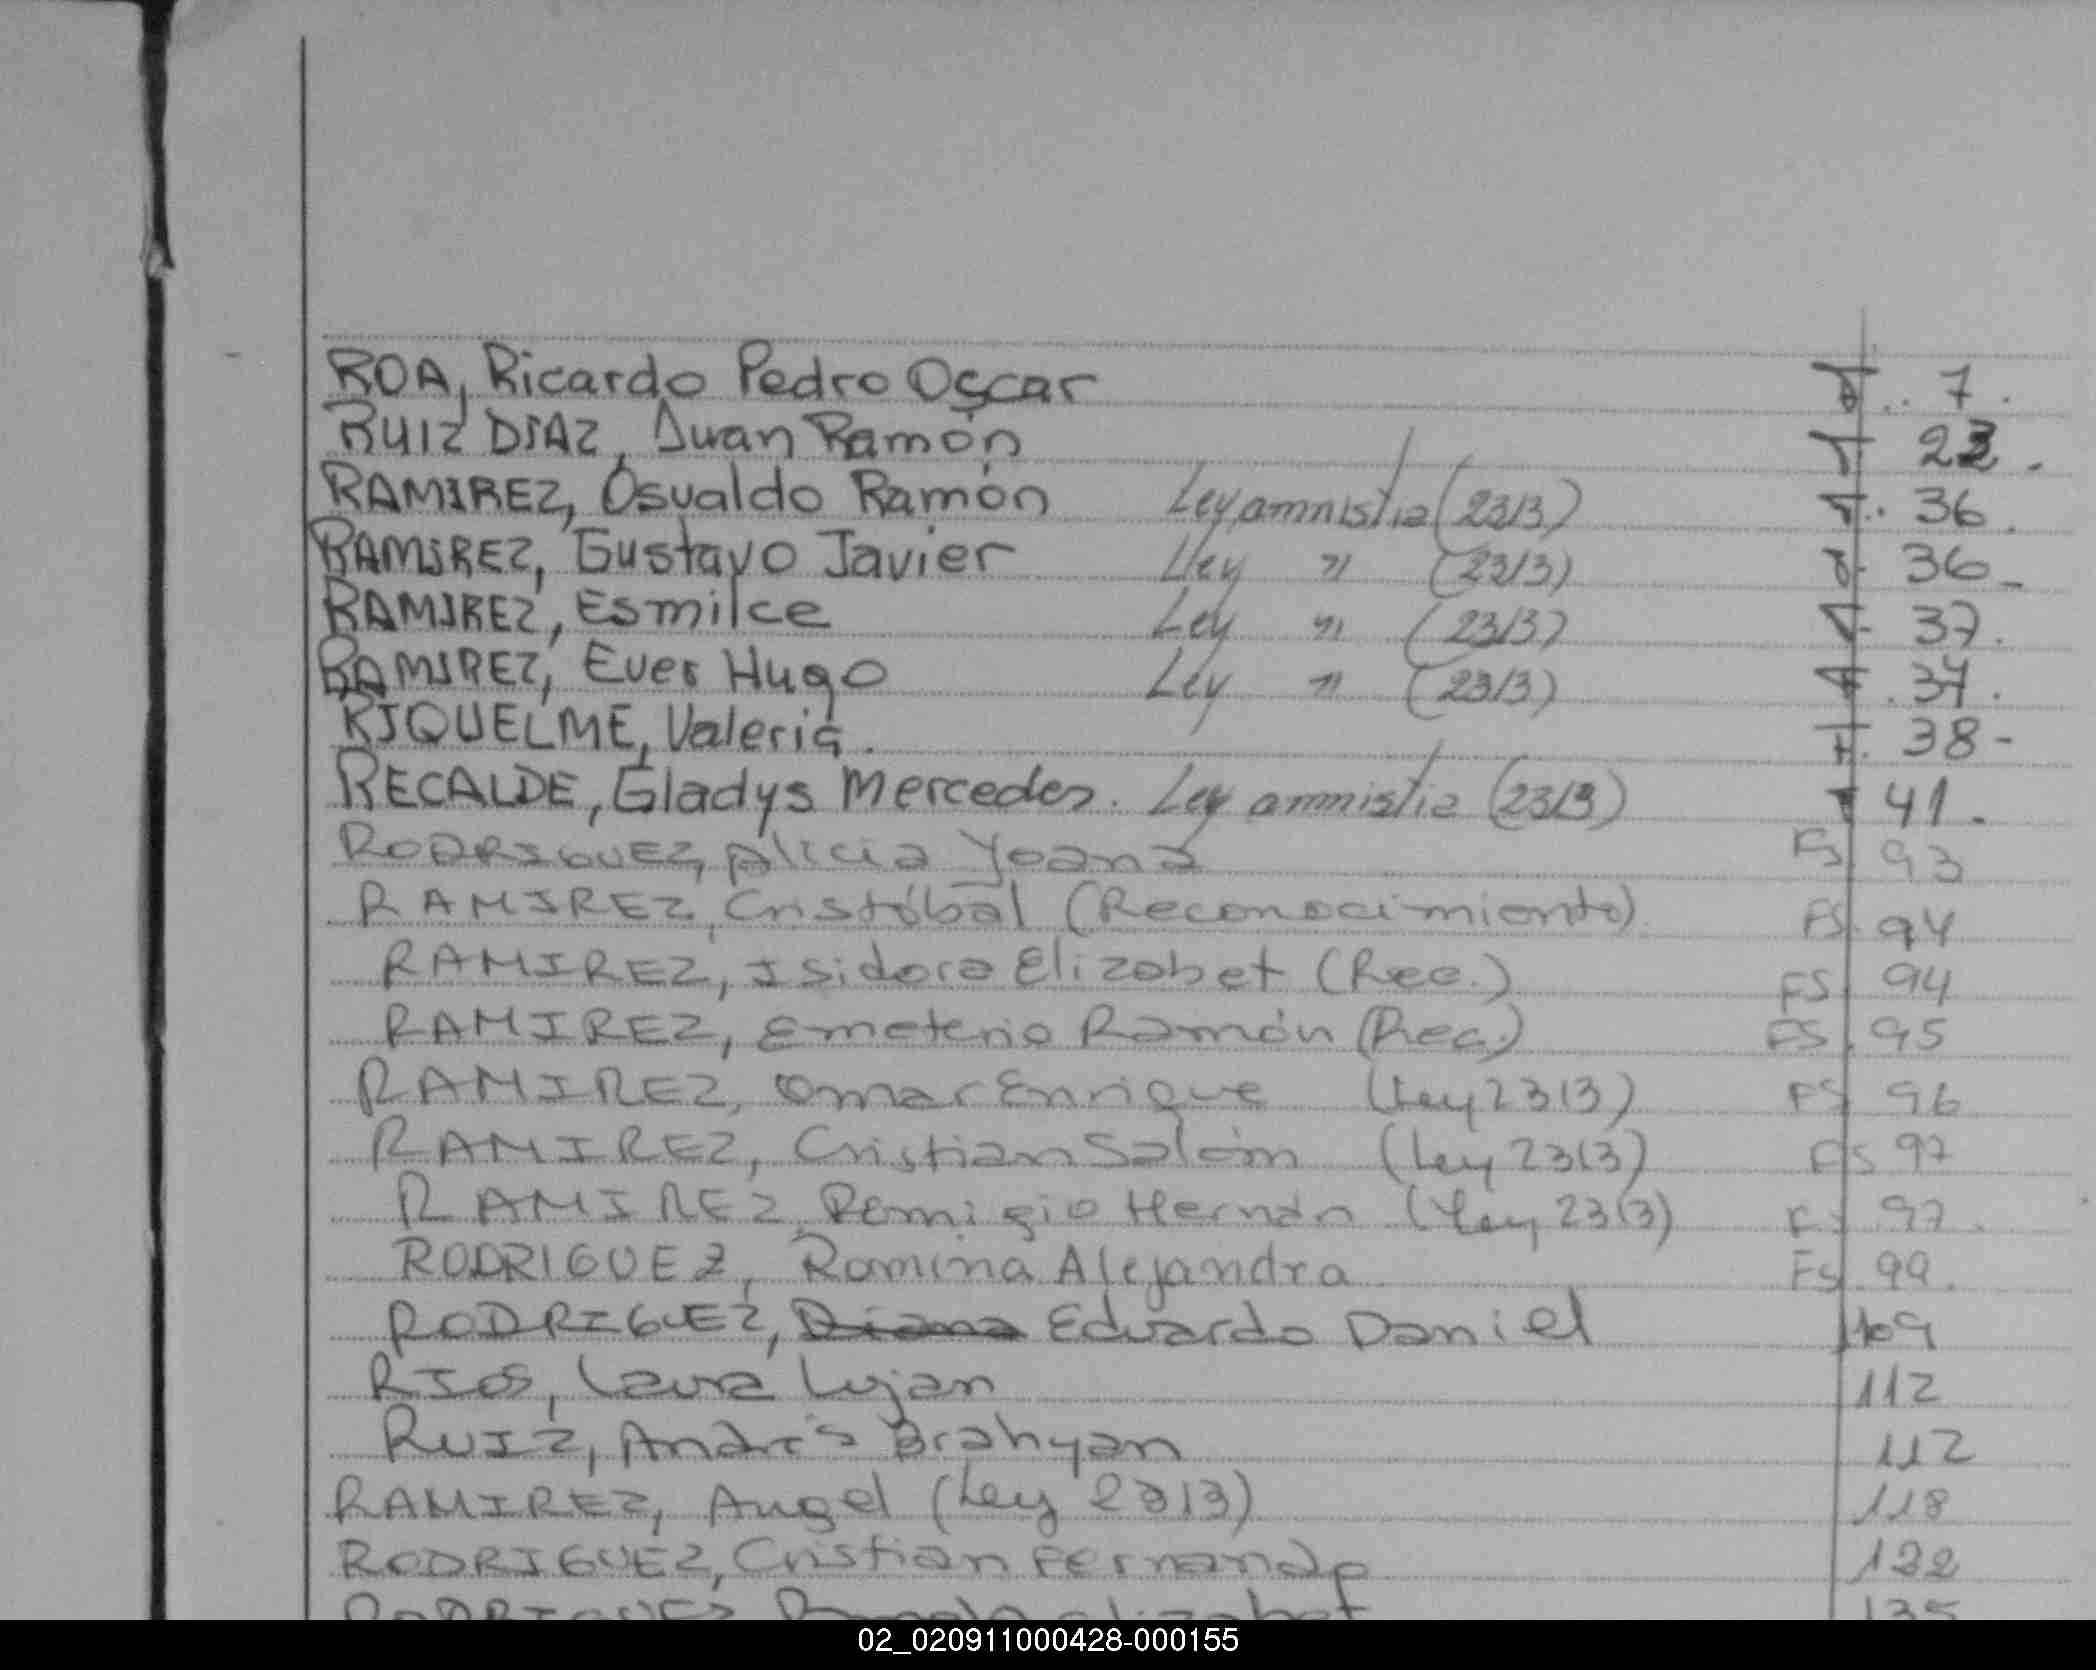 ROA, Ricardo Pedro Oscar 7.
RUIZ DIAZ, Juan Ramón 23.
RAMIREZ, Osvaldo Ramón Ley amnistia (2313) 36.
RAMIREZ, Gustavo Javier Ley " (2313) 36-
RAMIREZ, Esmilce Ley " (2313) 37.
RAMIREZ, Ever Hugo Ley " (2313) 37.
RIQUELME, Valeria. 38-
RECALDE, Gladys Mercedes. Ley amnistia (2313) 41.
RODRIGUEZ, Alicia Yoana FS 93
RAMIREZ, Cristóbal (Reconocimiento) FS 94
RAMIREZ, Isidora Elizabet (Rec.) FS 94
RAMIREZ, Emeterio Ramón (Rec.) FS 95
RAMIREZ, Omar Enrique (Ley 2313) FS 96
RAMIREZ, Cristian Salóm (Ley 2313) FS 97
RAMIREZ, Remigio Hernán (Ley 2313) FS 97.
RODRIGUEZ, Romina Alejandra Fs 99.
RODRIGUEZ, Diana Eduardo Daniel 109
RIOS, Laura Lujan 112
RUIZ, Andrés Brahyan 112
RAMIREZ, Angel (Ley 2313) 118
RODRIGUEZ, Cristian Fernando 122
RODRIGUEZ elizabet 135
02_020911000428-000155